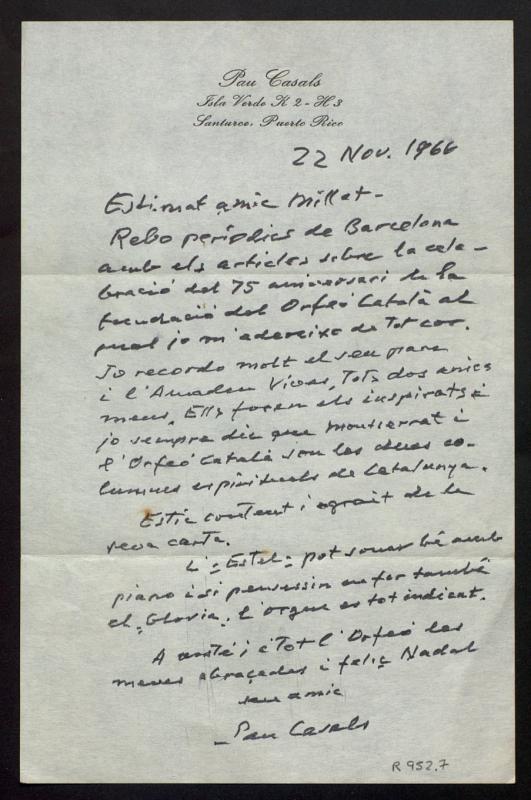 Pau Casals
Isla Verde K 2 - H 3
Santurce, Puerto Rico
22 Nov. 1966
Estimat amic Millet -
Rebo periodics de Barcelona
amb els articles sobre la cele-
bració del 75 aniversari de la
fundació del Orfeó Català al
qual jo m'adereixo de tot cor.
Jo recordo molt el seu pare
i l'Amadeu Vives, Tots dos amics
meus. Ells foren els inspirats i
jo sempre dic que Montserrat i
l'Orfeó Català son les dues co-
lumnes espirituals de Catalunya.
Estic content i agrait de la
seva carta.
L'"Estel" pot sonar bé amb
piano i si pensessin en fer també
el "Gloria", l'orgue es tot indicat.
A vostè i a Tot l'Orfeó les
meves abraçades i feliç Nadal
seu amic
Pau Casals
R 952.7